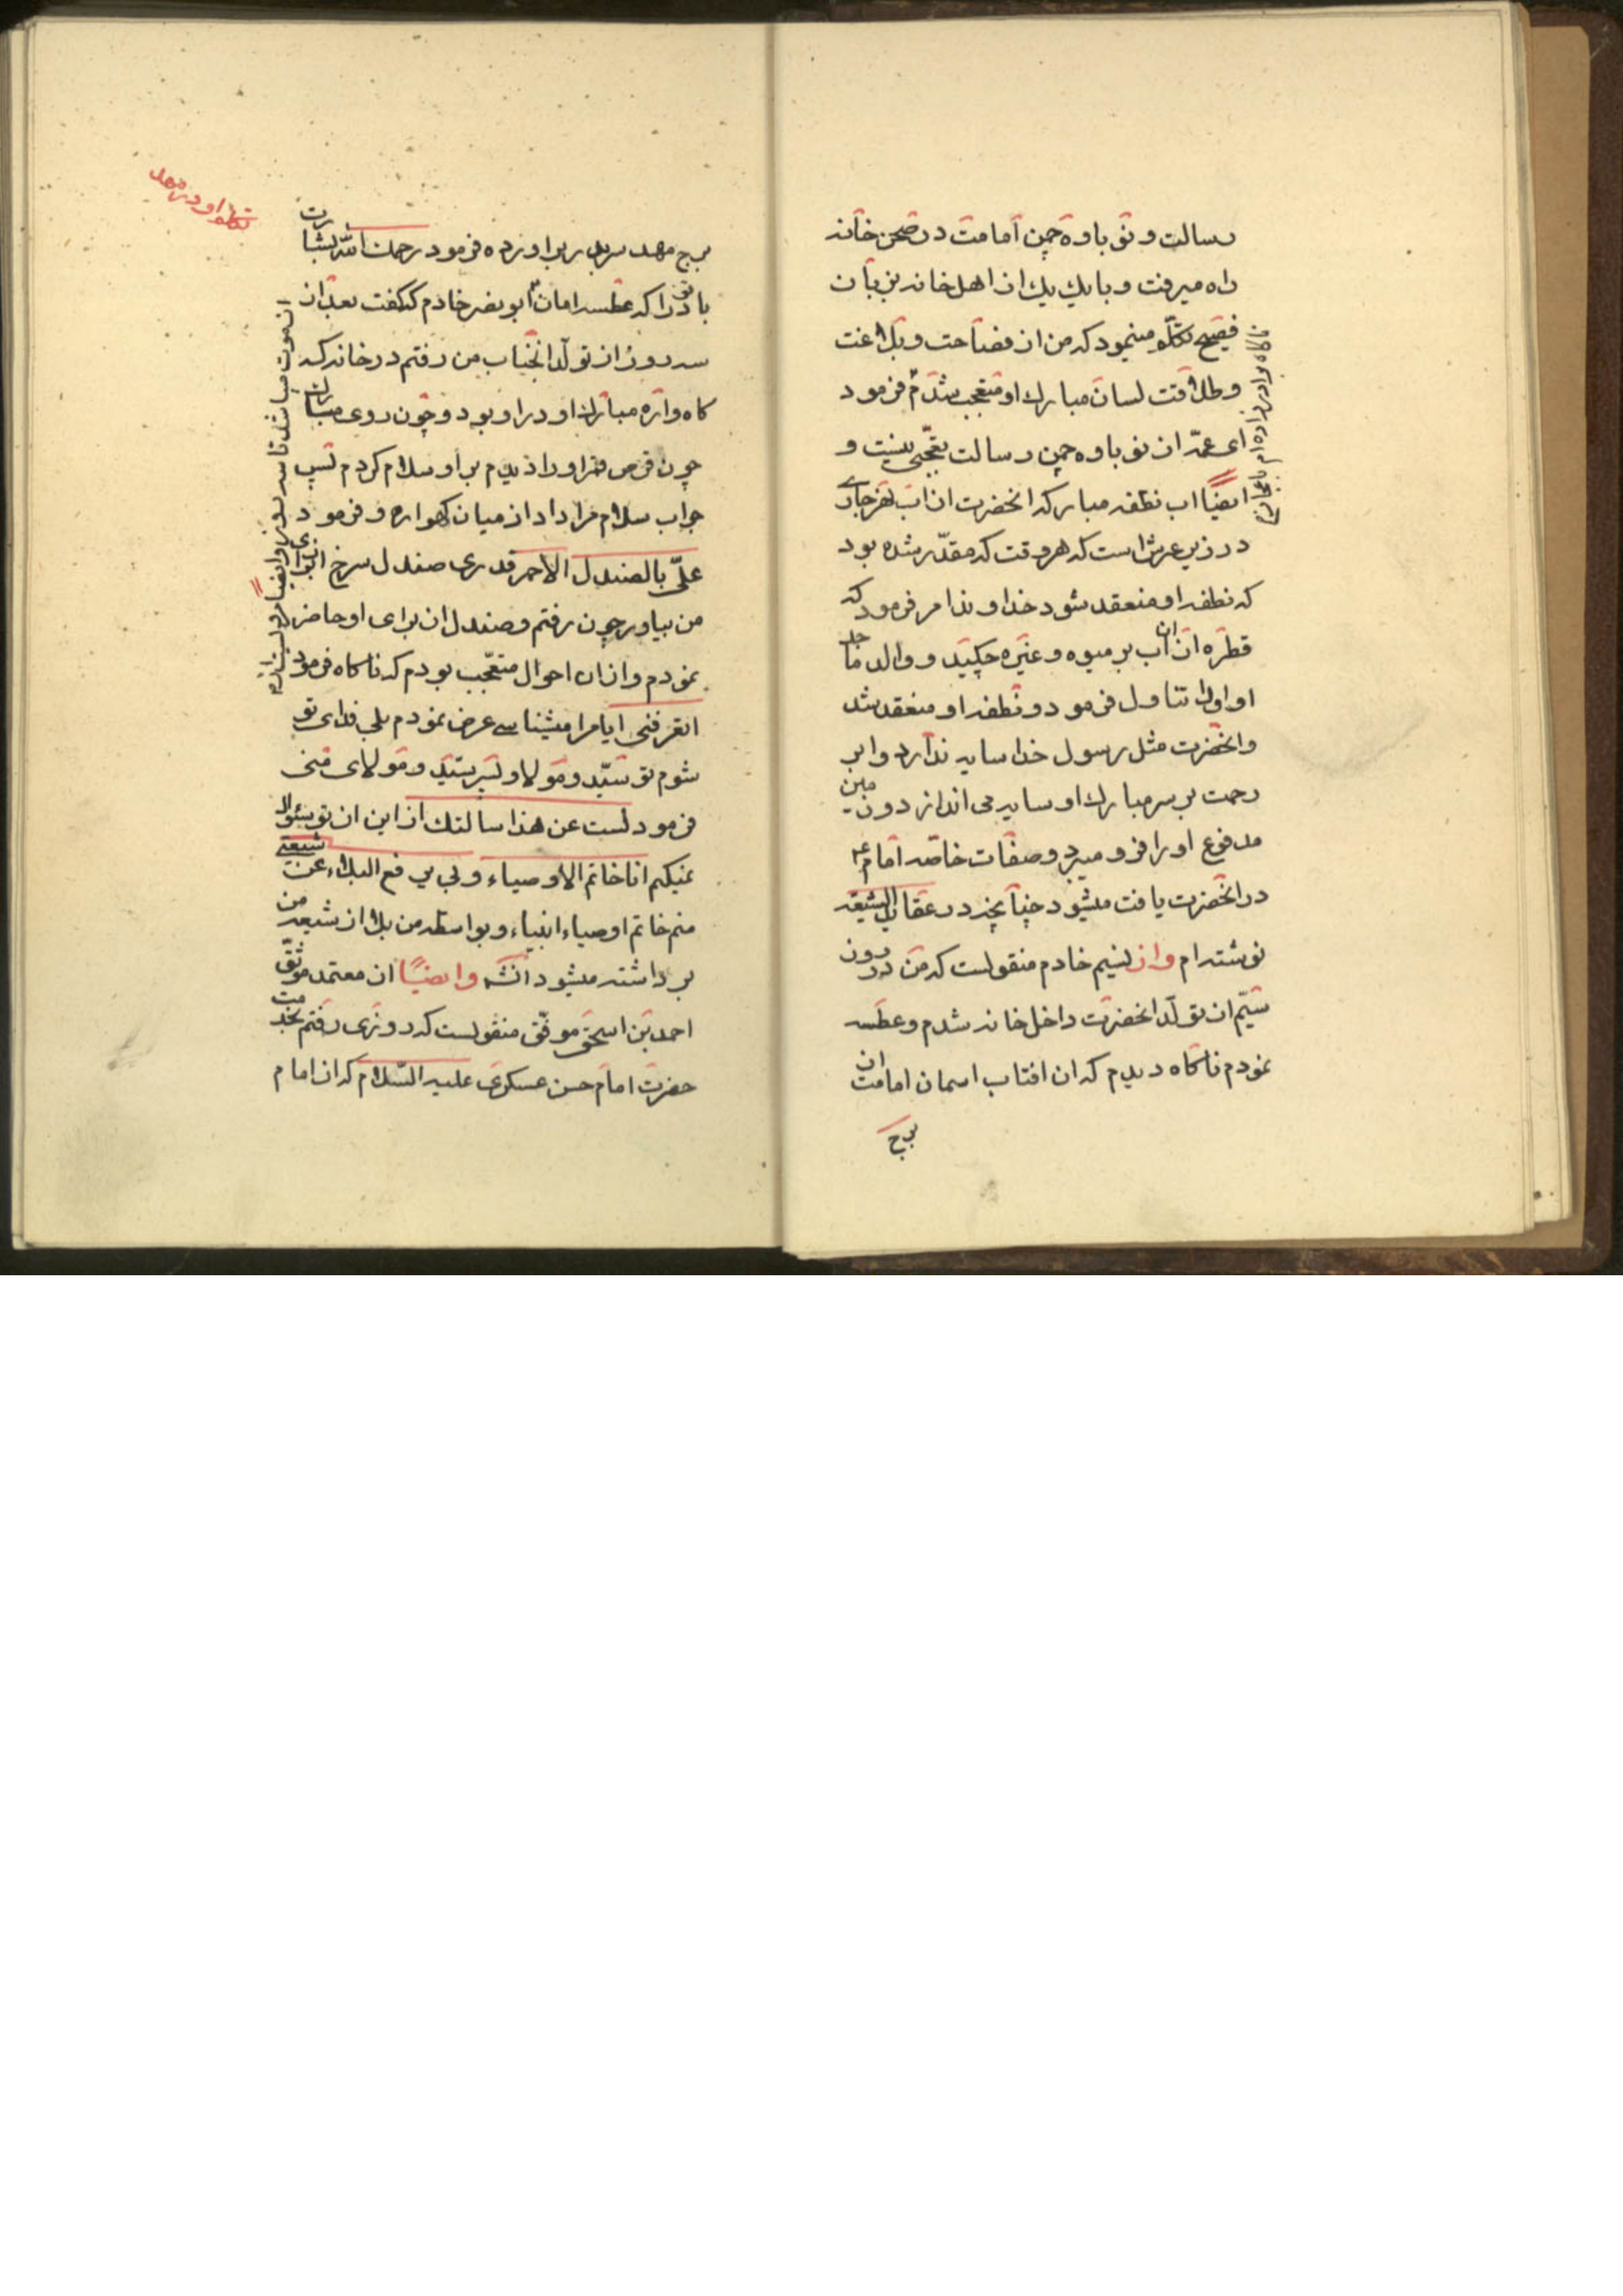 رسالت و نو باوه چمن امامت در صحن خانه
راه میرفت و با یك یك از اهل خانه بزبان
فصیح تکلّم مینمود که من از فصاحت و بلاغت
و طلاقت لسان مبارك او متعجب شدم فرمود
ای عمّه از نو باوه چمن رسالت تعجّبی نیست و
ایضًا اب نطفه مبارکه انحضرت از اب نهر جاری
در زیر عرش است که هر وقت که مقدّر شده بود
که نطفه او منعقد شود خداوند امر فرمود که
قطره از ان اب بر میوه و غیره چکید و والد ماجد
او اورا تناول فرمود و نطفه او منعقد شد
وانحضرت مثل رسول خدا سایه ندارد و ابر
رحمت بر سر مبارك او سایه می اندازد و زمین
مدفوع اورا فرو میبرد و صفات خاصّه امام ع
در انحضرت یافت میشود چنانچه در عقاید الشیعه
نوشته ام واز نسیم خادم منقولست که من در روز
سیّم از تولّد انحضرت داخل خانه شدم و عطسه
نمودم ناکاه دیدم که ان افتاب اسمان امامت از
برج
تکلم او در مهد
برج مهد سر بدر براورده فرمود رحمك الله بشارت
باد ترا که عطسه امان ابو نصر خادم کفت بعد از
سه روز از تولّد انجناب من رفتم در خانه که
کاهواره مبارك او در او بود و چون روی مبارك
چون قرص قمر اورا دیدم بر او سلام کردم پس
جواب سلام مرا داد از میان کهواره و فرمود
علیّ بالصندل الاحمر قدری صندل سرخ از برای
من بیاور چون رفتم و صندل از برای او حاضر
نمودم و از ان احوال متعجّب بودم که ناکاه فرمود
اتعرفنی ایا مرا میشناسی عرض نمودم بلی فدای تو
شوم تو سیّد و مولا و پسر سیّد و مولای منی
فرمود لست عن هذا سالتك از این از تو سئوال
نمیکنم انا خاتم الاوصیاء و بی یرفع البلاء عن شیعتی
منم خاتم اوصیاء انبیاء و بواسطه من بلا از شیعه من
برداشته میشود انشه وایضًا از معتمد موثّق
احمد بن اسحق موفّق منقولست که روزی رفتم بخدمت
حضرت امام حسن عسکری علیه السّلام که از امام